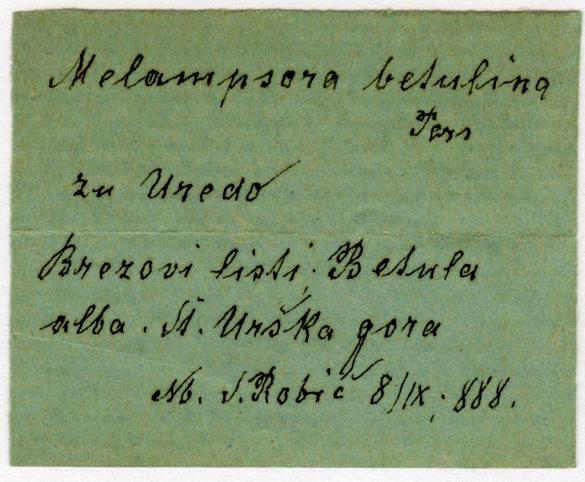 Melampsora betulina
Pers
zu Uredo
Brezovi listi. Betula
alba. St. Urška gora
Nb. S. Robič 8/IX. 888.